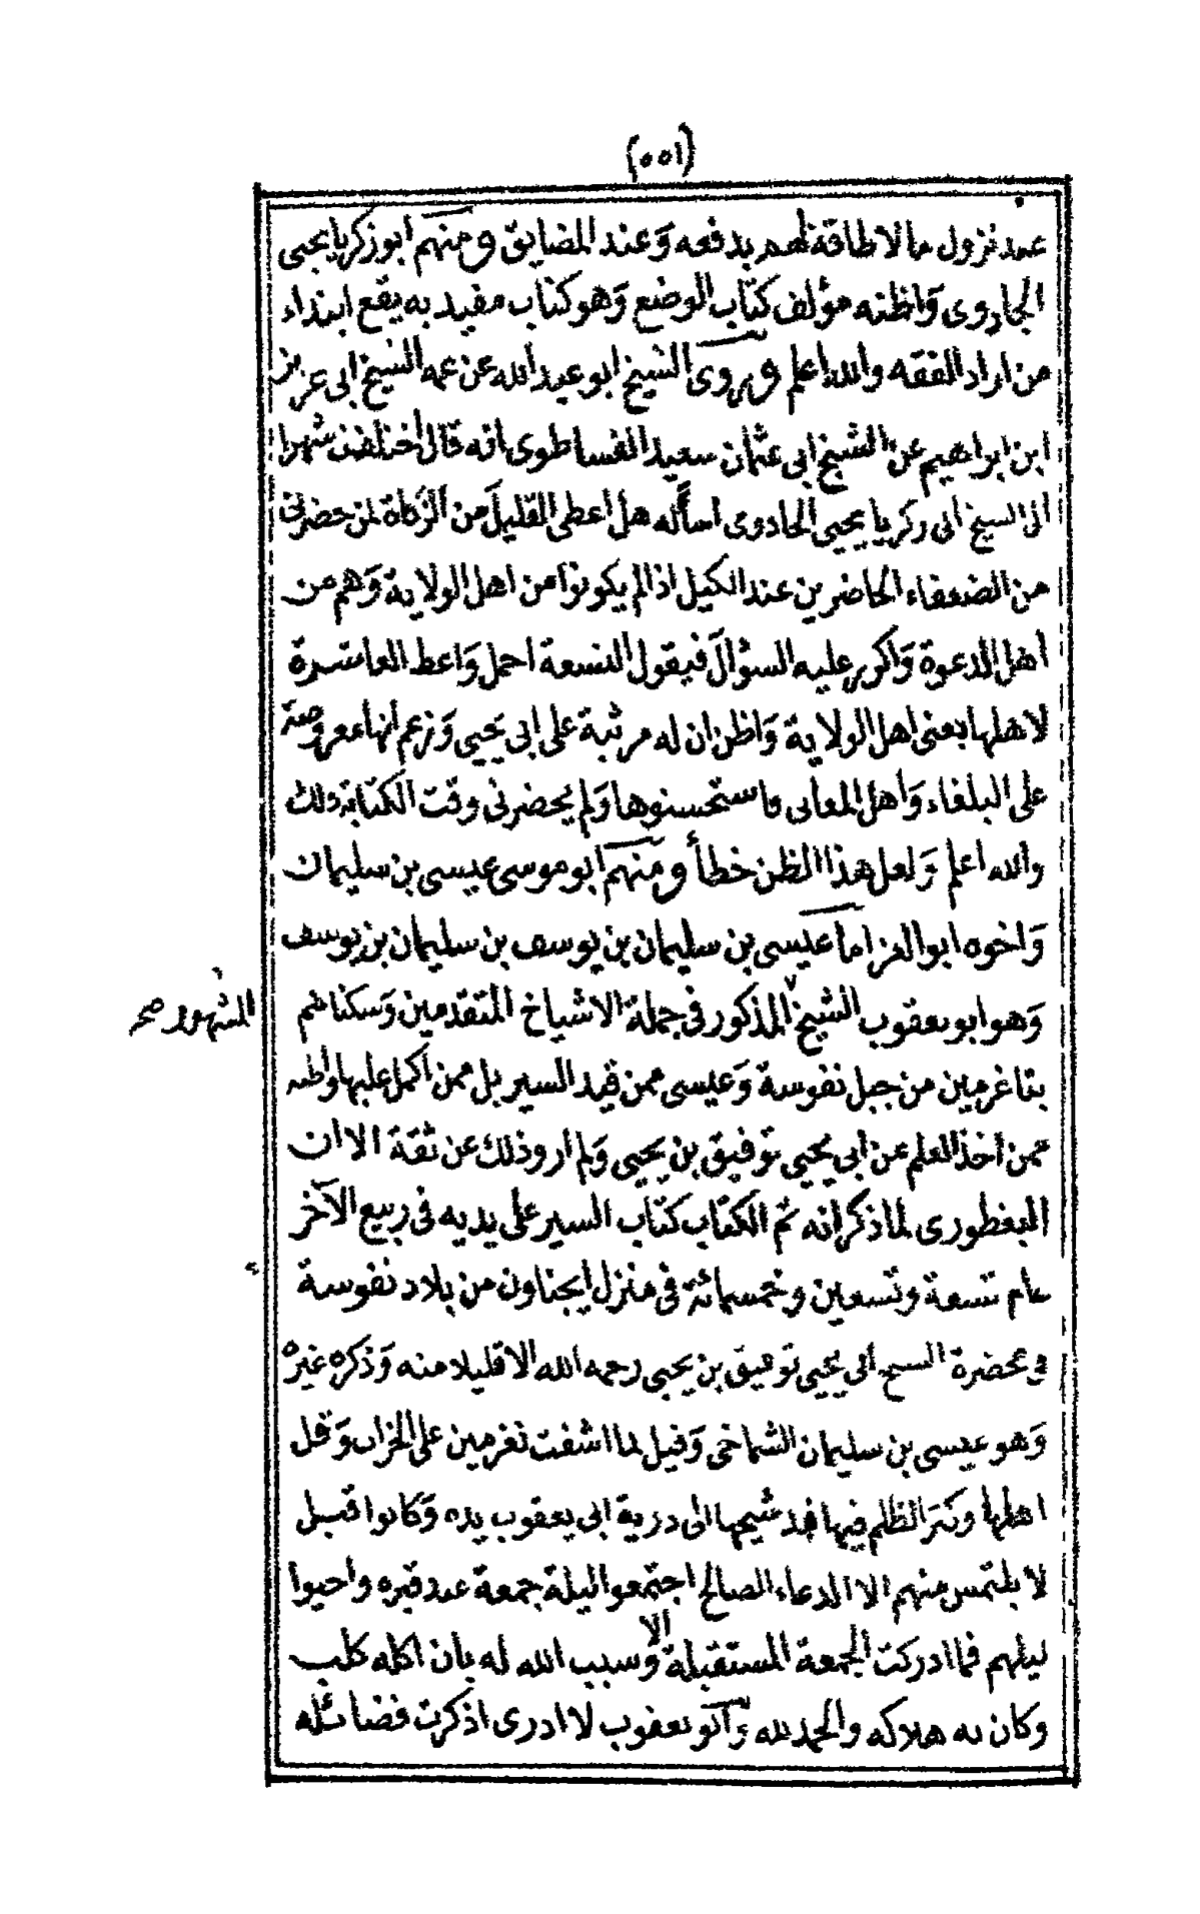 (٥٥١)
عند نزول ما لا طاقة لهم بدفعه وعند المضايق ومنهم ابو زكريا يحيى
الجادوى واظنه مؤلف كتاب الوضع وهو كتاب مفيد به يقع ابتداء
من اراد الفقه والله اعلم وروى الشيخ ابو عبد الله عن عمه الشيخ ابى عزيز
ابن ابراهيم عن الشيخ ابى عثمان سعيد القساطوى انه قال اختلفت شهرا
الى الشيخ ابى زكريا يحيى الجادوى اسأله هل اعطى القليل من الزكاة لمن حضرنى
من الضعفاء الحاضرين عند الكيل اذا لم يكونوا من اهل الولاية وهم من
اهل الدعوة واكرر عليه السؤال فيقول التسعة احمل واعط العاشرة
لاهلها يعنى اهل الولاية واظن ان له مرثية على ابى يحيى وزعم انها معروضة
على البلغاء واهل المعانى فاستحسنوها ولم يحضرنى وقت الكتابة ذلك
والله اعلم ولعل هذا الظن خطأ ومنهم ابو موسى عيسى بن سليمان
واخوه ابو العز اما عيسى بن سليمان بن يوسف بن سليمان بن يوسف
وهو ابو يعقوب الشيخ المذكور فى جملة الاشياخ المتقدمين وسكناهم
المشهور صح
بتاغرمين من جبل نفوسة وعيسى ممن قيد السير بل ممن اكمل عليها واظنه
ممن اخذ العلم عن ابى يحيى توفيق بن يحيى ولم ارو ذلك عن ثقة الا ان
البغطورى لما ذكر انه تم الكتاب كتاب السير على يديه فى ربيع الآخر
عام تسعة وتسعين وخمسمائة فى منزل ايجناون من بلاد نفوسة
فى محضرة الشيخ ابى يحيى توفيق بن يحيى رحمه الله الا قليلا منه وذكره غيره
وهو عيسى بن سليمان الشماخى وقيل لما اشفت تغرمين على الخراب وقل
اهلها وكثر الظلم فيها فمد شيخها الى ذرية ابى يعقوب يده وكانوا قبل
لا يلتمس منهم الا الدعاء الصالح اجتمعوا ليلة جمعة عند قبره واحيوا
ليلهم فما ادركت الجمعة المستقبلة الا وسبب الله له بان اكله كلب
وكان به هلاكه والحمد لله وابو يعقوب لا ادرى اذكرت فضائله